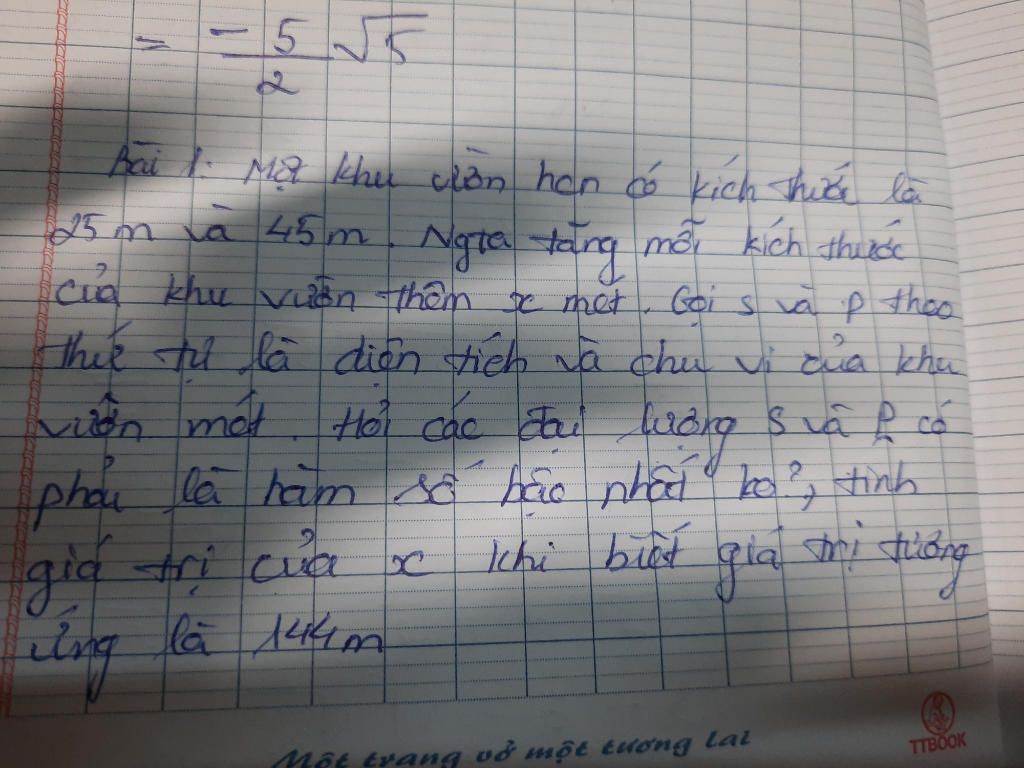 = -5/2 √5
Bài 1: Một khu vườn hcn có kích thước là
25m và 45m. Ngta tăng mỗi kích thước
của khu vườn thêm x mét. Gọi S và P theo
thứ tự là diện tích và chu vi của khu
vườn mới. Hỏi các đại lượng S và P có
phải là hàm số bậc nhất ko?, tính
giá trị của x khi biết giá trị tương
ứng là 144m
Một trang vở một tương lai
TTBOOK